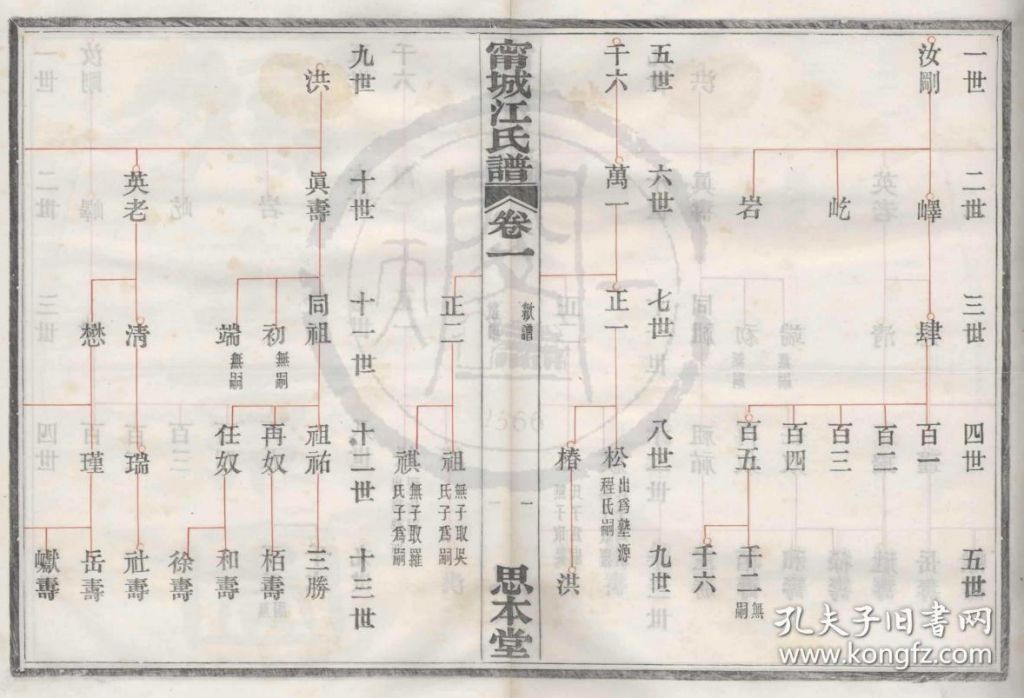 一世
汝剛
二世
嶧
屹
岩
三世
肆
四世
百一
百二
百三
百四
百五
五世
千二 無嗣
千六
五世
千六
六世
萬一
七世
正一
正二
八世
松 出爲塾源程氏嗣
椿
祖 無子取吳氏子爲嗣
祺 無子取羅氏子爲嗣
九世
洪
甯城江氏譜
卷一
一
思本堂
九世
洪
十世
眞壽
英老
十一世
同祖
初 無嗣
端 無嗣
清
懋
十二世
祖祐
再奴
任奴
瑞
百瑾
十三世
三勝
栢壽
和壽
徐壽
社壽
岳壽
巘壽
孔夫子旧书网
www.kongfz.com